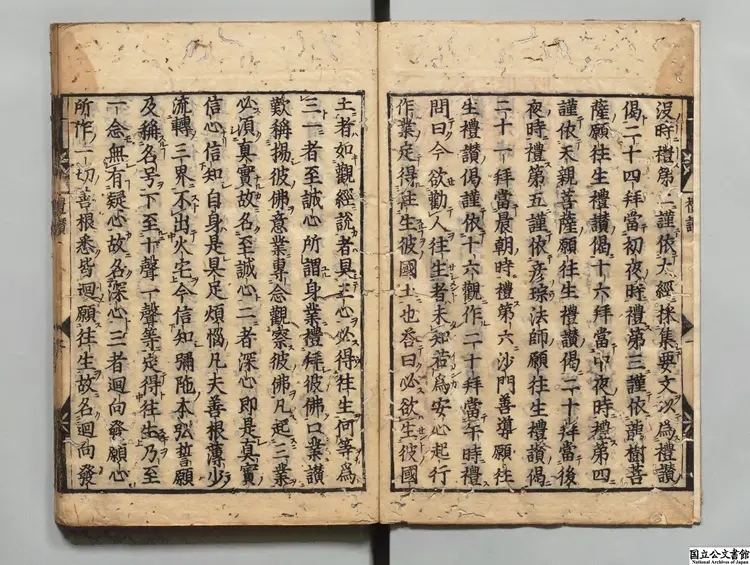 没時禮第二謹依大經採集要文以為禮讃
偈二十四拜當初夜時禮第三謹依龍樹菩
薩願往生禮讃偈十六拜當中夜時禮第四
謹依天親菩薩願往生禮讃偈二十拜當後
夜時禮第五謹依彦琮法師願往生禮讃偈
二十一拜當晨朝時禮第六沙門善導願往
生禮讃偈謹依十六觀作二十拜當午時禮
問曰今欲勸人往生者未知若為安心起行
作業定得往生彼國土也荅曰必欲生彼國
土者如觀經説者具三心必得往生何等為
三一者至誠心所謂身業禮拜彼佛口業讃
歎稱揚彼佛意業專念觀察彼佛凡起三業
必須真實故名至誠心二者深心即是真實
信心信知自身是具足煩惱凡夫善根薄少
流轉三界不出火宅今信知彌陁本弘誓願
及稱名号下至十聲一聲等定得往生乃至
一念無有疑心故名深心三者迴向發願心
所作一切善根悉皆迴願往生故名迴向發
禮讃
禮讃
国立公文書館
National Archives of Japan